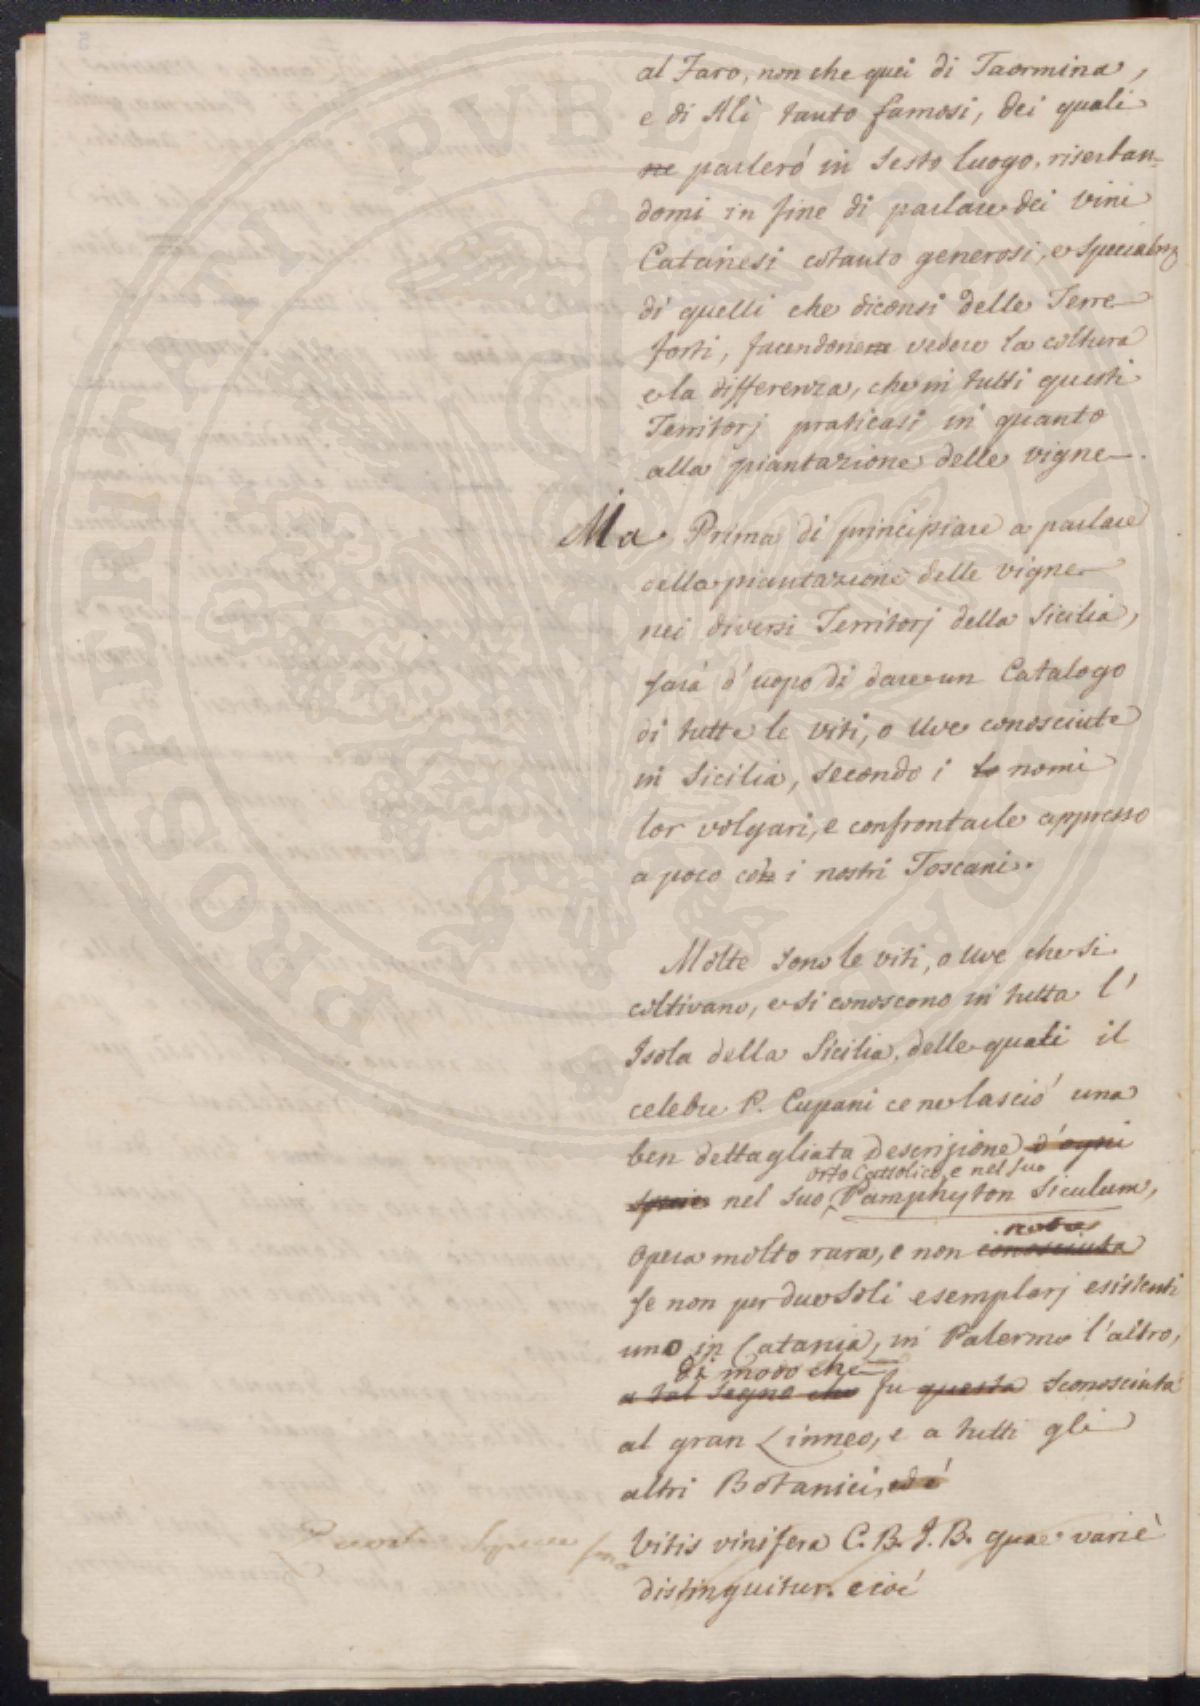 al Faro, non che quei di Taormina,
e di Alì tanto famosi, dei quali
ne parlerò in sesto luogo, riserban=
domi in fine di parlare dei vini
Catanesi cotanto generosi, e specialm.
di quelli che diconsi delle Terre
forti, facendone vedere la coltura
e la differenza, che in tutti questi
Territorj praticasi in quanto
alla piantazione delle vigne.
Ma Prima di principiare a parlare
della piantazione delle vigne
nei diversi Territorj della Sicilia,
farà d'uopo di dare un Catalogo
di tutte le viti, o Uve conosciute
in Sicilia, secondo i le nomi
lor volgari, e confrontarle appresso
a poco con i nostri Toscani.
Molte sono le viti, o Uve che si
coltivano, e si conoscono in tutta l'
Isola della Sicilia, delle quali il
celebre P. Cupani ce ne lasciò una
ben dettagliata Descrizione d'ogni
orto Cattolico, e nel suo
specie nel suo Pamphyton Siculum,
nota
Opera molto rara, e non conosciuta
se non per due soli esemplarj esistenti
uno in Catania, in Palermo l'altro,
di modo che
a tal segno che fu questa sconosciuta
al gran Linneo, e a tutti gli
altri Botanici, ed è
Vitis vinifera C. B. J. B. quae varie
distinguitur. cioè
PROSPERITATI PVBLICAE